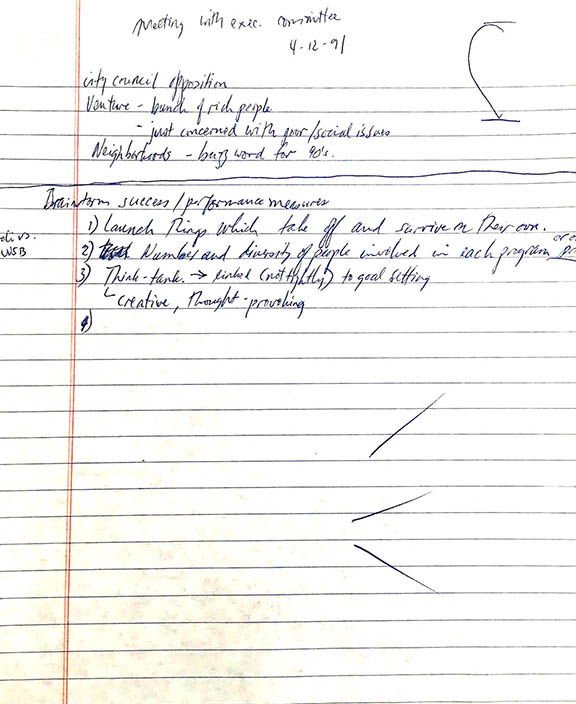 meeting with exec. committee
4-12-91
city council opposition
Venture - bunch of rich people
- just concerned with poor/social issues
Neighborhoods - buzz word for 90's.
Brainstorm success/performance measures
1) Launch things which take off and survive on their own.
2) Number and diversity of people involved in each program or
3) Think-tank. → linked (not tightly) to goal setting
creative, thought-provoking
4)
WSB